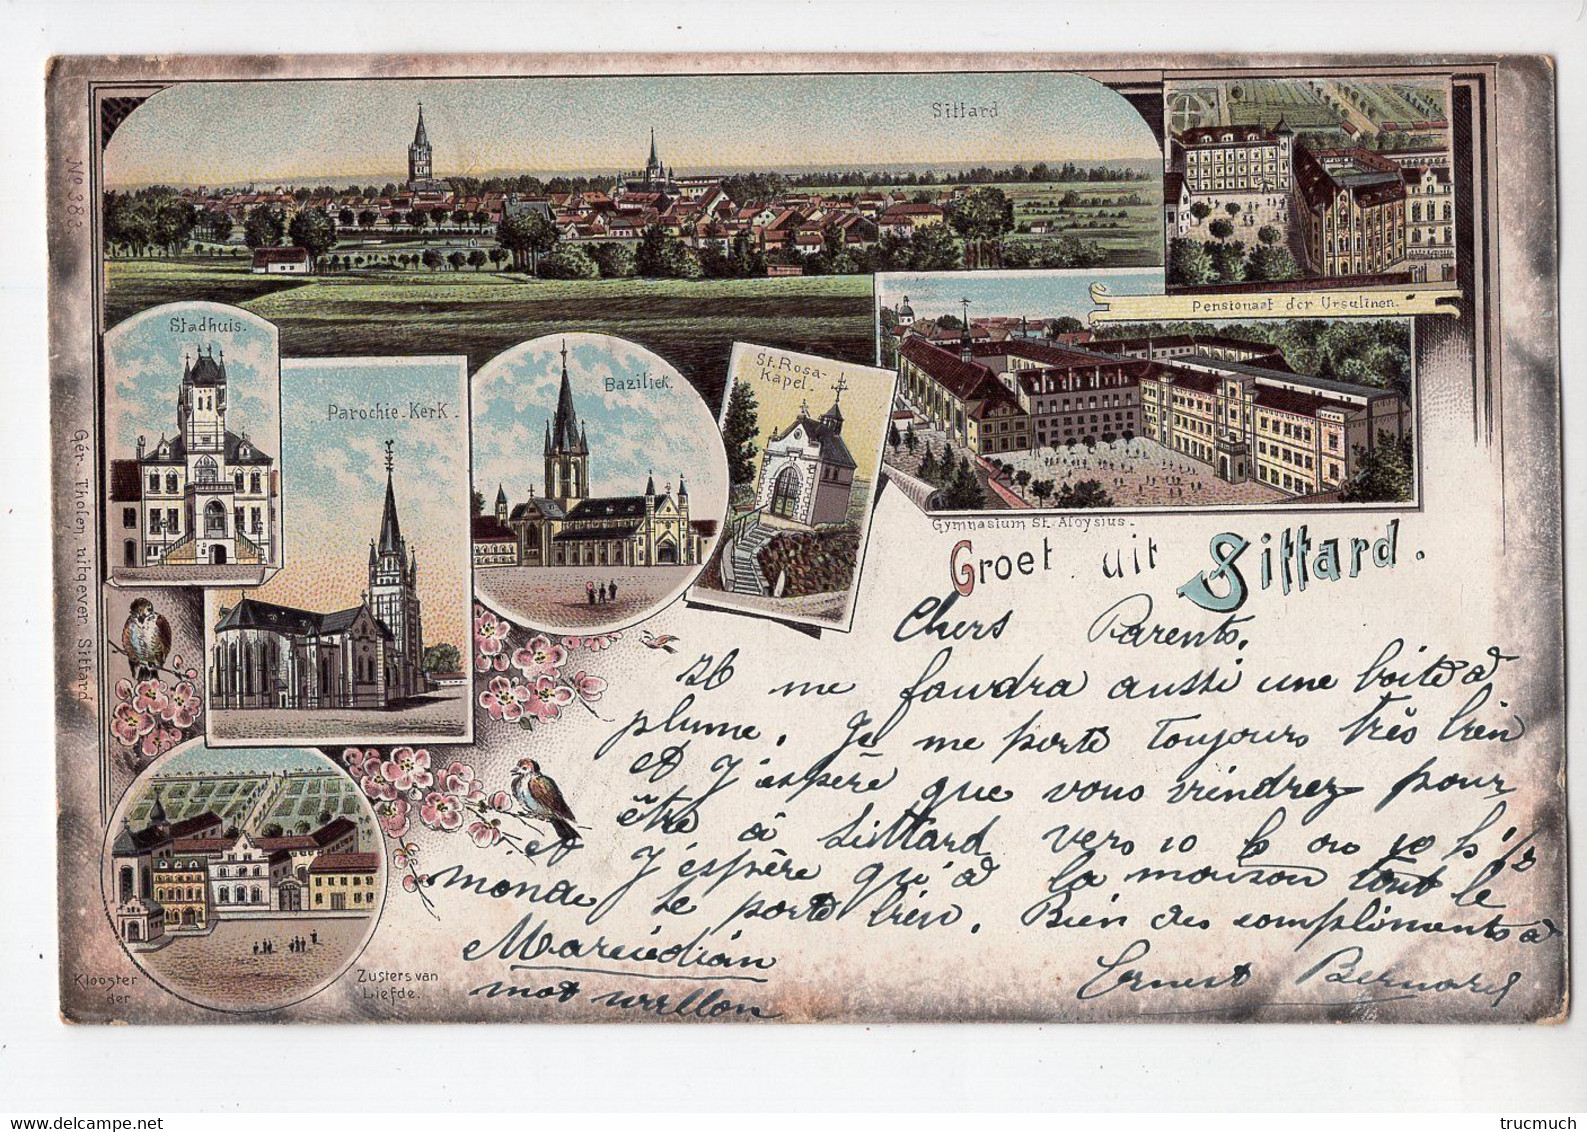 Sittard
Pensionaat der Ursulinen.
Stadhuis.
Parochie-Kerk.
Baziliek.
St. Rosa-
Kapel.
Gymnasium St. Aloysius.
Groet uit Sittard.
Klooster
der
Zusters van
Liefde.
No 383
Gér. Tholen, uitgever Sittard
Chers Parents,
Il me faudra aussi une boite à
plume. Je me porte toujours très bien
et j'éspère que vous viendrez pour
être à Sittard vers 10 h ou 10 h 1/2
et j'espère qu'à la maison tout le
monde se porte bien. Bien des compliments à
mot wallon
Ernest Bernard
delcampe.net
trucmuch